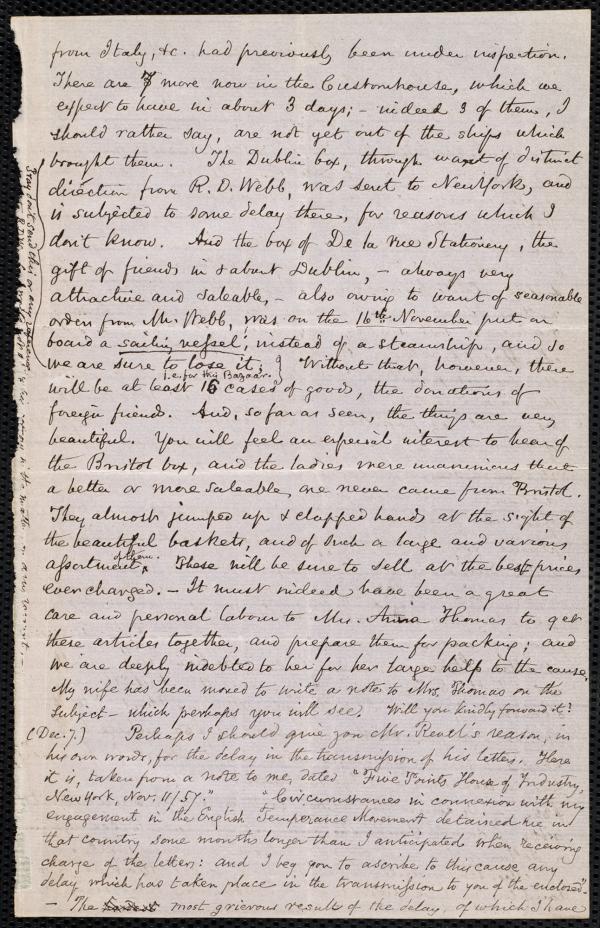 from Italy, &c. had previously been under inspection.
There are 7 more now in the Customhouse, which we
expect to have in about 3 days; - indeed 3 of them, I
should rather say, are not yet out of the ships which
brought them. The Dublin box, through want of distinct
direction from R. D. Webb, was sent to New York, and
is subjected to some delay there, for reasons which I
don't know. And the box of De la Rue Stationery, the
gift of friends in & about Dublin, - always very
attractive and saleable, - also owing to want of seasonable
orders from Mr. Webb, was on the 16th November put on
board a sailing vessel, instead of a steamship, and so
we are sure to lose it; } Without that, however, there
i.e. for this Bazaar.
will be at least 16 cases of goods, the donations of
foreign friends. And, so far as seen, the things are very
beautiful. You will feel an especial interest to hear of
the Bristol box, and the ladies were unanimous that
a better or more saleable, one never came from Bristol.
They almost jumped up & clapped hands at the sight of
the beautiful baskets, and of such a large and various
of them.
assortment. These will be sure to sell at the best prices
ever charged. - It must indeed have been a great
care and personal labour to Mrs. Thomas to get
these articles together, and prepare them for packing; and
we are deeply indebted to her for her large help to the cause.
My wife has been moved to write a note to Mrs. Thomas on the
subject - which perhaps you will see. Will you kindly forward it?
(Dec. 7.) Perhaps I should give you Mr. Revell's reason, in
his own words, for the delay in the transmission of his letters. Here
it is, taken from a note to me, dated "Five Points House of Industry,
New York, Nov. 11/57." "Circumstances in connexion with my
engagement in the English Temperance Movement detained me in
that country some months longer than I anticipated when receiving
charge of the letters: and I beg you to ascribe to this cause any
delay which has taken place in the transmission to you of the enclosed."
- The most grievous result of the delay, of which I have